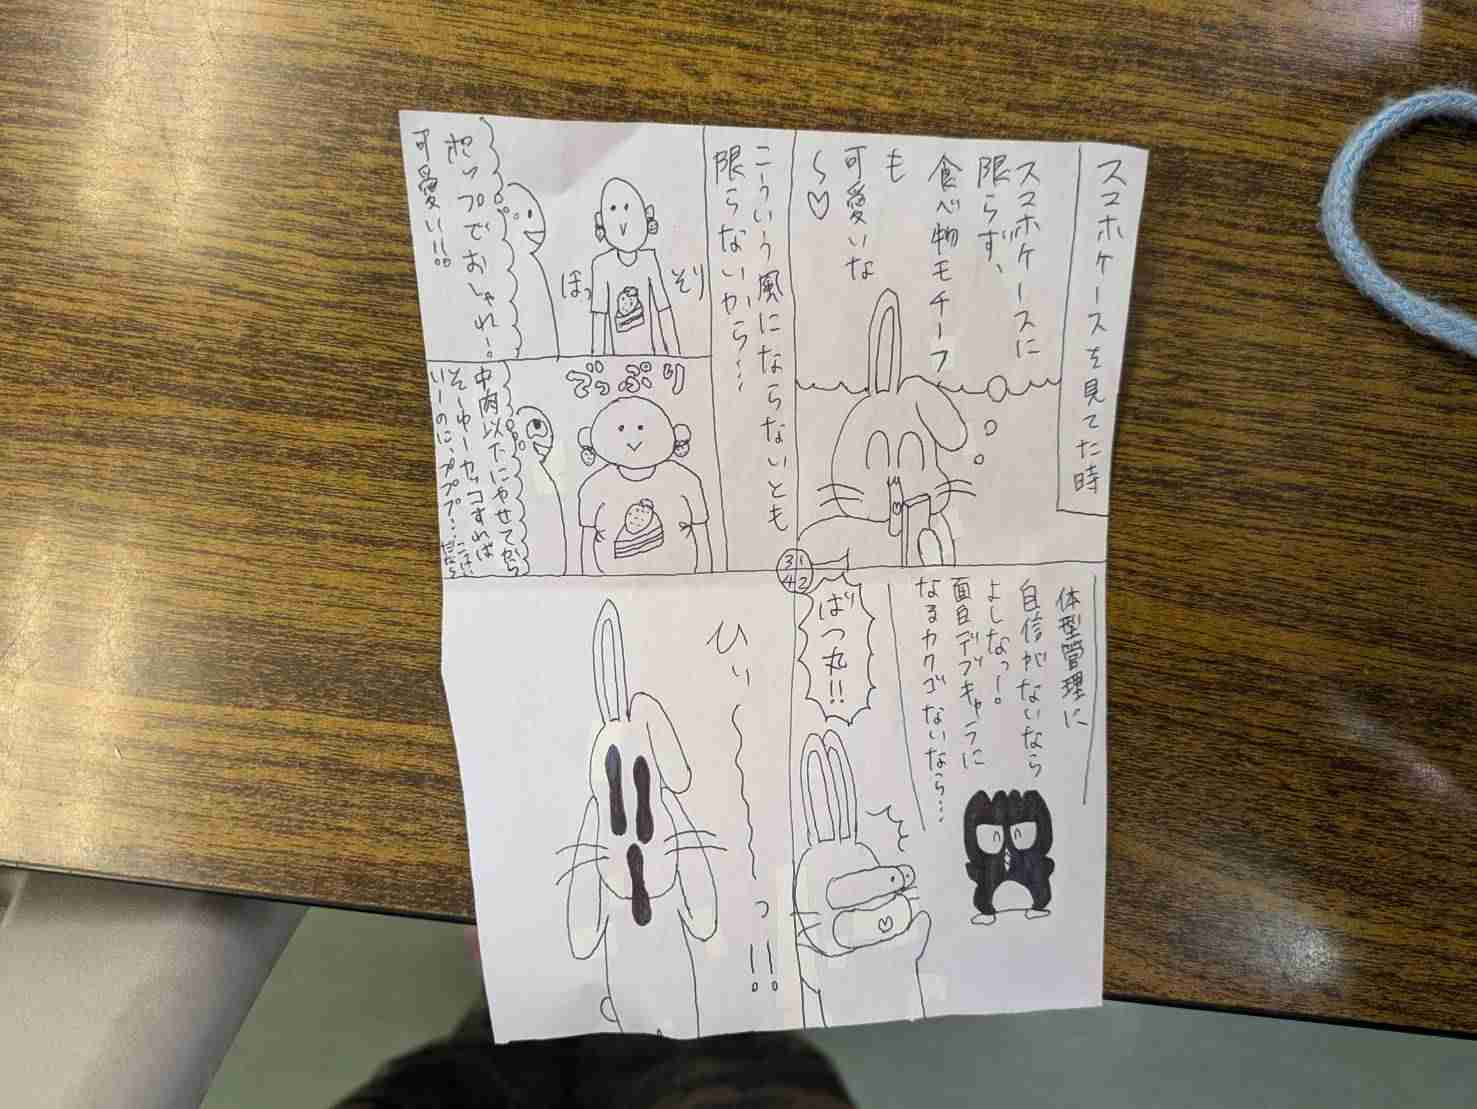 スマホケースを見てた時
スマホケースに
限らず、
食べ物モチーフ
も
可愛いな
～♡
体型管理に
自信がないなら
よしなっー。
面白デブキャラに
なるカクゴないなら…
ばつ丸!!
3 1
4 2
こういう風にならないとも
限らないから…
ほっ
そり
ポップでおしゃれー。
可愛い!!
でっぷり
中肉以下にやせてから
そーゆーカッコすれば
いーのに、ププ…
ひぃ～っ!!